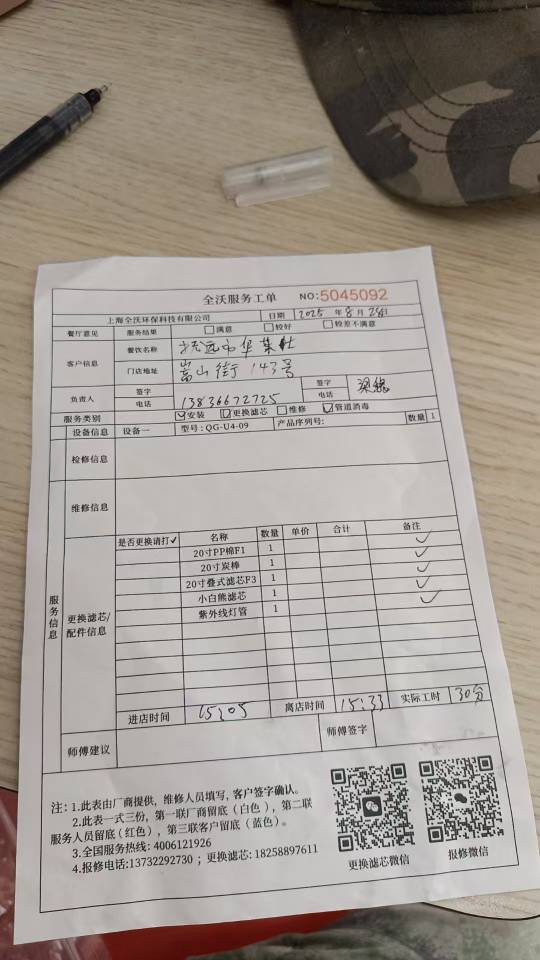 全沃服务工单 NO:5045092
上海全沃环保科技有限公司 日期 2025 年 8 月 24日
餐厅意见 服务结果 □满意 □较好 □较差不满意
客户信息 餐饮名称 抚远市华莱士
门店地址 嵩山街143号
负责人 签字 签字
电话 13836672725 电话
服务类别 ☑安装 ☑更换滤芯 □维修 ☑管道消毒
设备信息 设备一 型号:QG-U4-09 产品序列号: 数量 1
检修信息
维修信息
服务信息
更换滤芯/配件信息
是否更换请打✓ 名称 数量 单价 合计 备注
20寸PP棉F1 1 ✓
20寸炭棒 1 ✓
20寸叠式滤芯F3 1 ✓
小白熊滤芯 1 ✓
紫外线灯管 1 ✓
进店时间 15:05 离店时间 15:33 实际工时 30分
师傅建议 师傅签字
注:1.此表由厂商提供,维修人员填写,客户签字确认。
2.此表一式三份,第一联厂商留底(白色),第二联
服务人员留底(红色),第三联客户留底(蓝色)。
3.全国服务热线: 4006121926
4.报修电话:13732292730 ; 更换滤芯: 18258897611
更换滤芯微信 报修微信